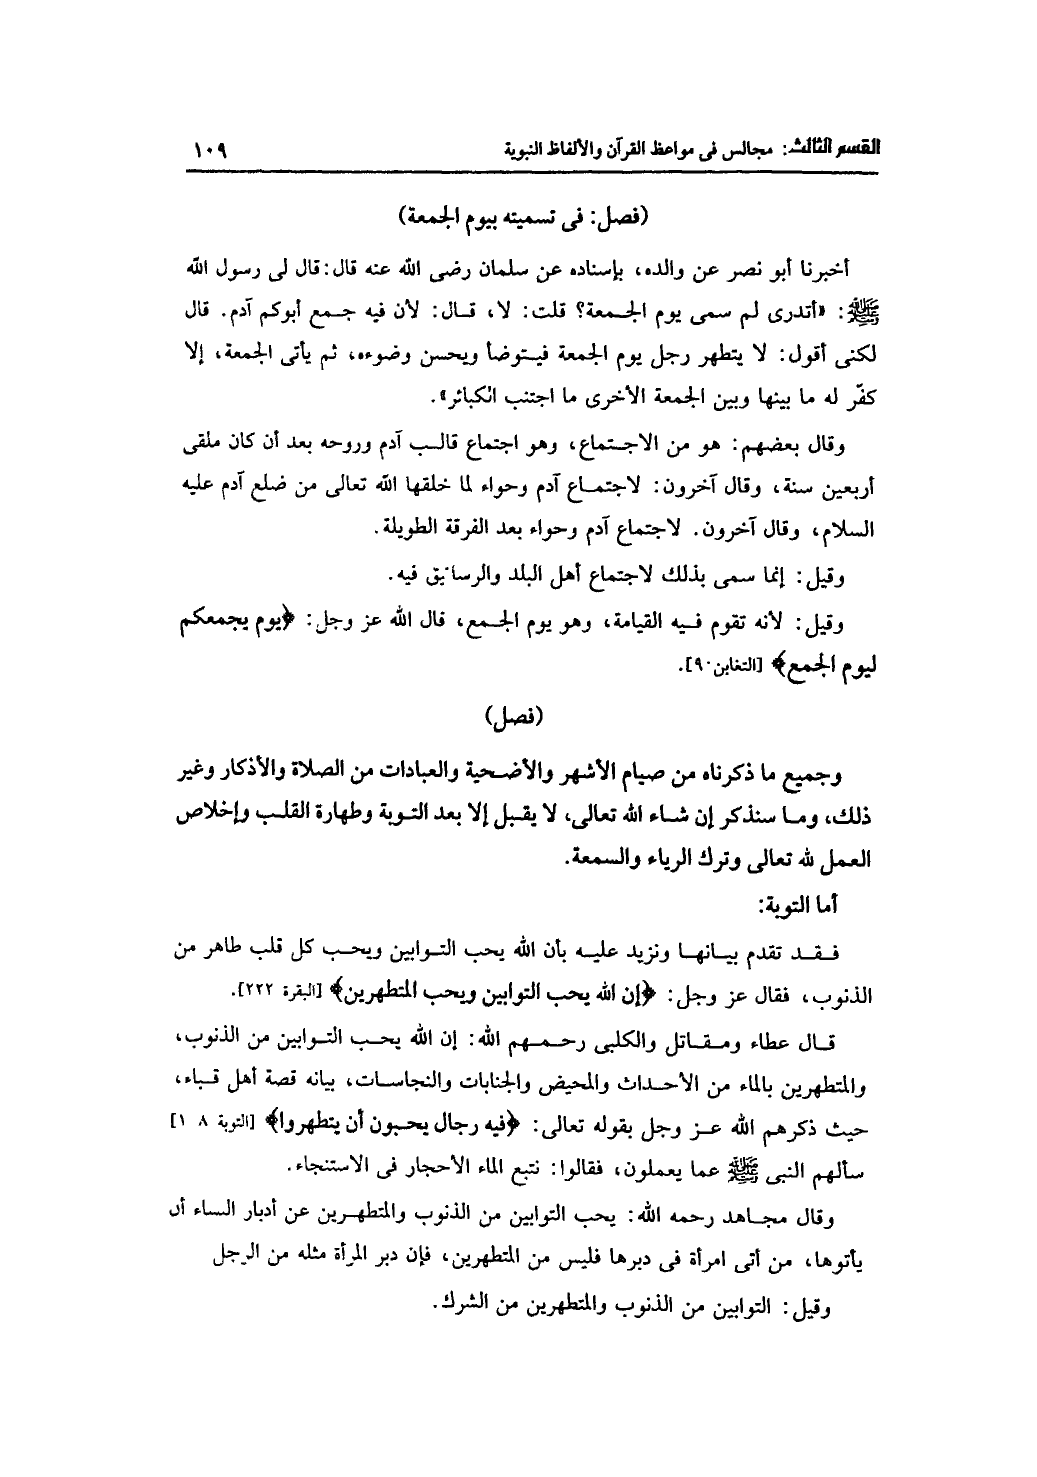 القسم الثالث: مجالس فى مواعظ القرآن والألفاظ النبوية ١٠٩
(فصل: فى تسميته بيوم الجمعة)
أخبرنا أبو نصر عن والده، بإسناده عن سلمان رضى الله عنه قال: قال لى رسول الله
ﷺ: «أتدرى لم سمى يوم الجمعة؟ قلت: لا، قال: لأن فيه جمع أبوكم آدم. قال
لكنى أقول: لا يتطهر رجل يوم الجمعة فيتوضأ ويحسن وضوءه، ثم يأتى الجمعة، إلا
كفّر له ما بينها وبين الجمعة الأخرى ما اجتنب الكبائر».
وقال بعضهم: هو من الاجتماع، وهو اجتماع قالب آدم وروحه بعد أن كان ملقى
أربعين سنة، وقال آخرون: لاجتماع آدم وحواء لما خلقها الله تعالى من ضلع آدم عليه
السلام، وقال آخرون. لاجتماع آدم وحواء بعد الفرقة الطويلة.
وقيل: إنما سمى بذلك لاجتماع أهل البلد والرساتيق فيه.
وقيل: لأنه تقوم فيه القيامة، وهو يوم الجمع، قال الله عز وجل: ﴿يوم يجمعكم
ليوم الجمع﴾ [التغابن٩٠].
(فصل)
وجميع ما ذكرناه من صيام الأشهر والأضحية والعبادات من الصلاة والأذكار وغير
ذلك، وما سنذكر إن شاء الله تعالى، لا يقبل إلا بعد التوبة وطهارة القلب وإخلاص
العمل لله تعالى وترك الرياء والسمعة.
أما التوبة:
فقد تقدم بيانها ونزيد عليه بأن الله يحب التوابين ويحب كل قلب طاهر من
الذنوب، فقال عز وجل: ﴿إن الله يحب التوابين ويحب المتطهرين﴾ [البقرة ٢٢٢].
قال عطاء ومقاتل والكلبى رحمهم الله: إن الله يحب التوابين من الذنوب،
والمتطهرين بالماء من الأحداث والمحيض والجنابات والنجاسات، بيانه قصة أهل قباء،
حيث ذكرهم الله عز وجل بقوله تعالى: ﴿فيه رجال يحبون أن يتطهروا﴾ [التوبة ٨ ١]
سألهم النبى ﷺ عما يعملون، فقالوا: نتبع الماء الأحجار فى الاستنجاء.
وقال مجاهد رحمه الله: يحب التوابين من الذنوب والمتطهرين عن أدبار النساء أن
يأتوها، من أتى امرأة فى دبرها فليس من المتطهرين، فإن دبر المرأة مثله من الرجل
وقيل: التوابين من الذنوب والمتطهرين من الشرك.